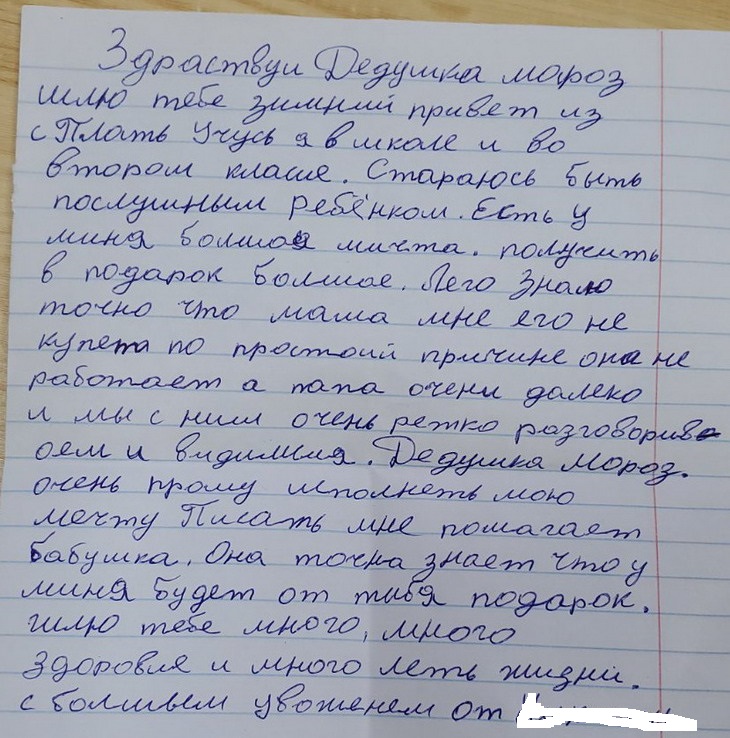 Здраствуи Дедушка мороз
шлю тебе зимний привет из
с Плать Учусь я в школе и во
втором класе. Стараюсь быть
послушным ребёнком. Есть у
миня болшоя мичта. получить
в подарок болшое. Лего Знаю
точно что мама мне его не
купета по простоий причине она не
работает а папа очени далеко
и мы с ним очень режко разговорива
оем и видимися. Дедушка Мороз.
очень прошу исполнеть мою
мечту Писать мне помагает
бабушка. Она точна знает что у
миня будет от тибя подарок.
шлю тебе много, много
здоровле и много леть жизни.
с болшьем уваженем от